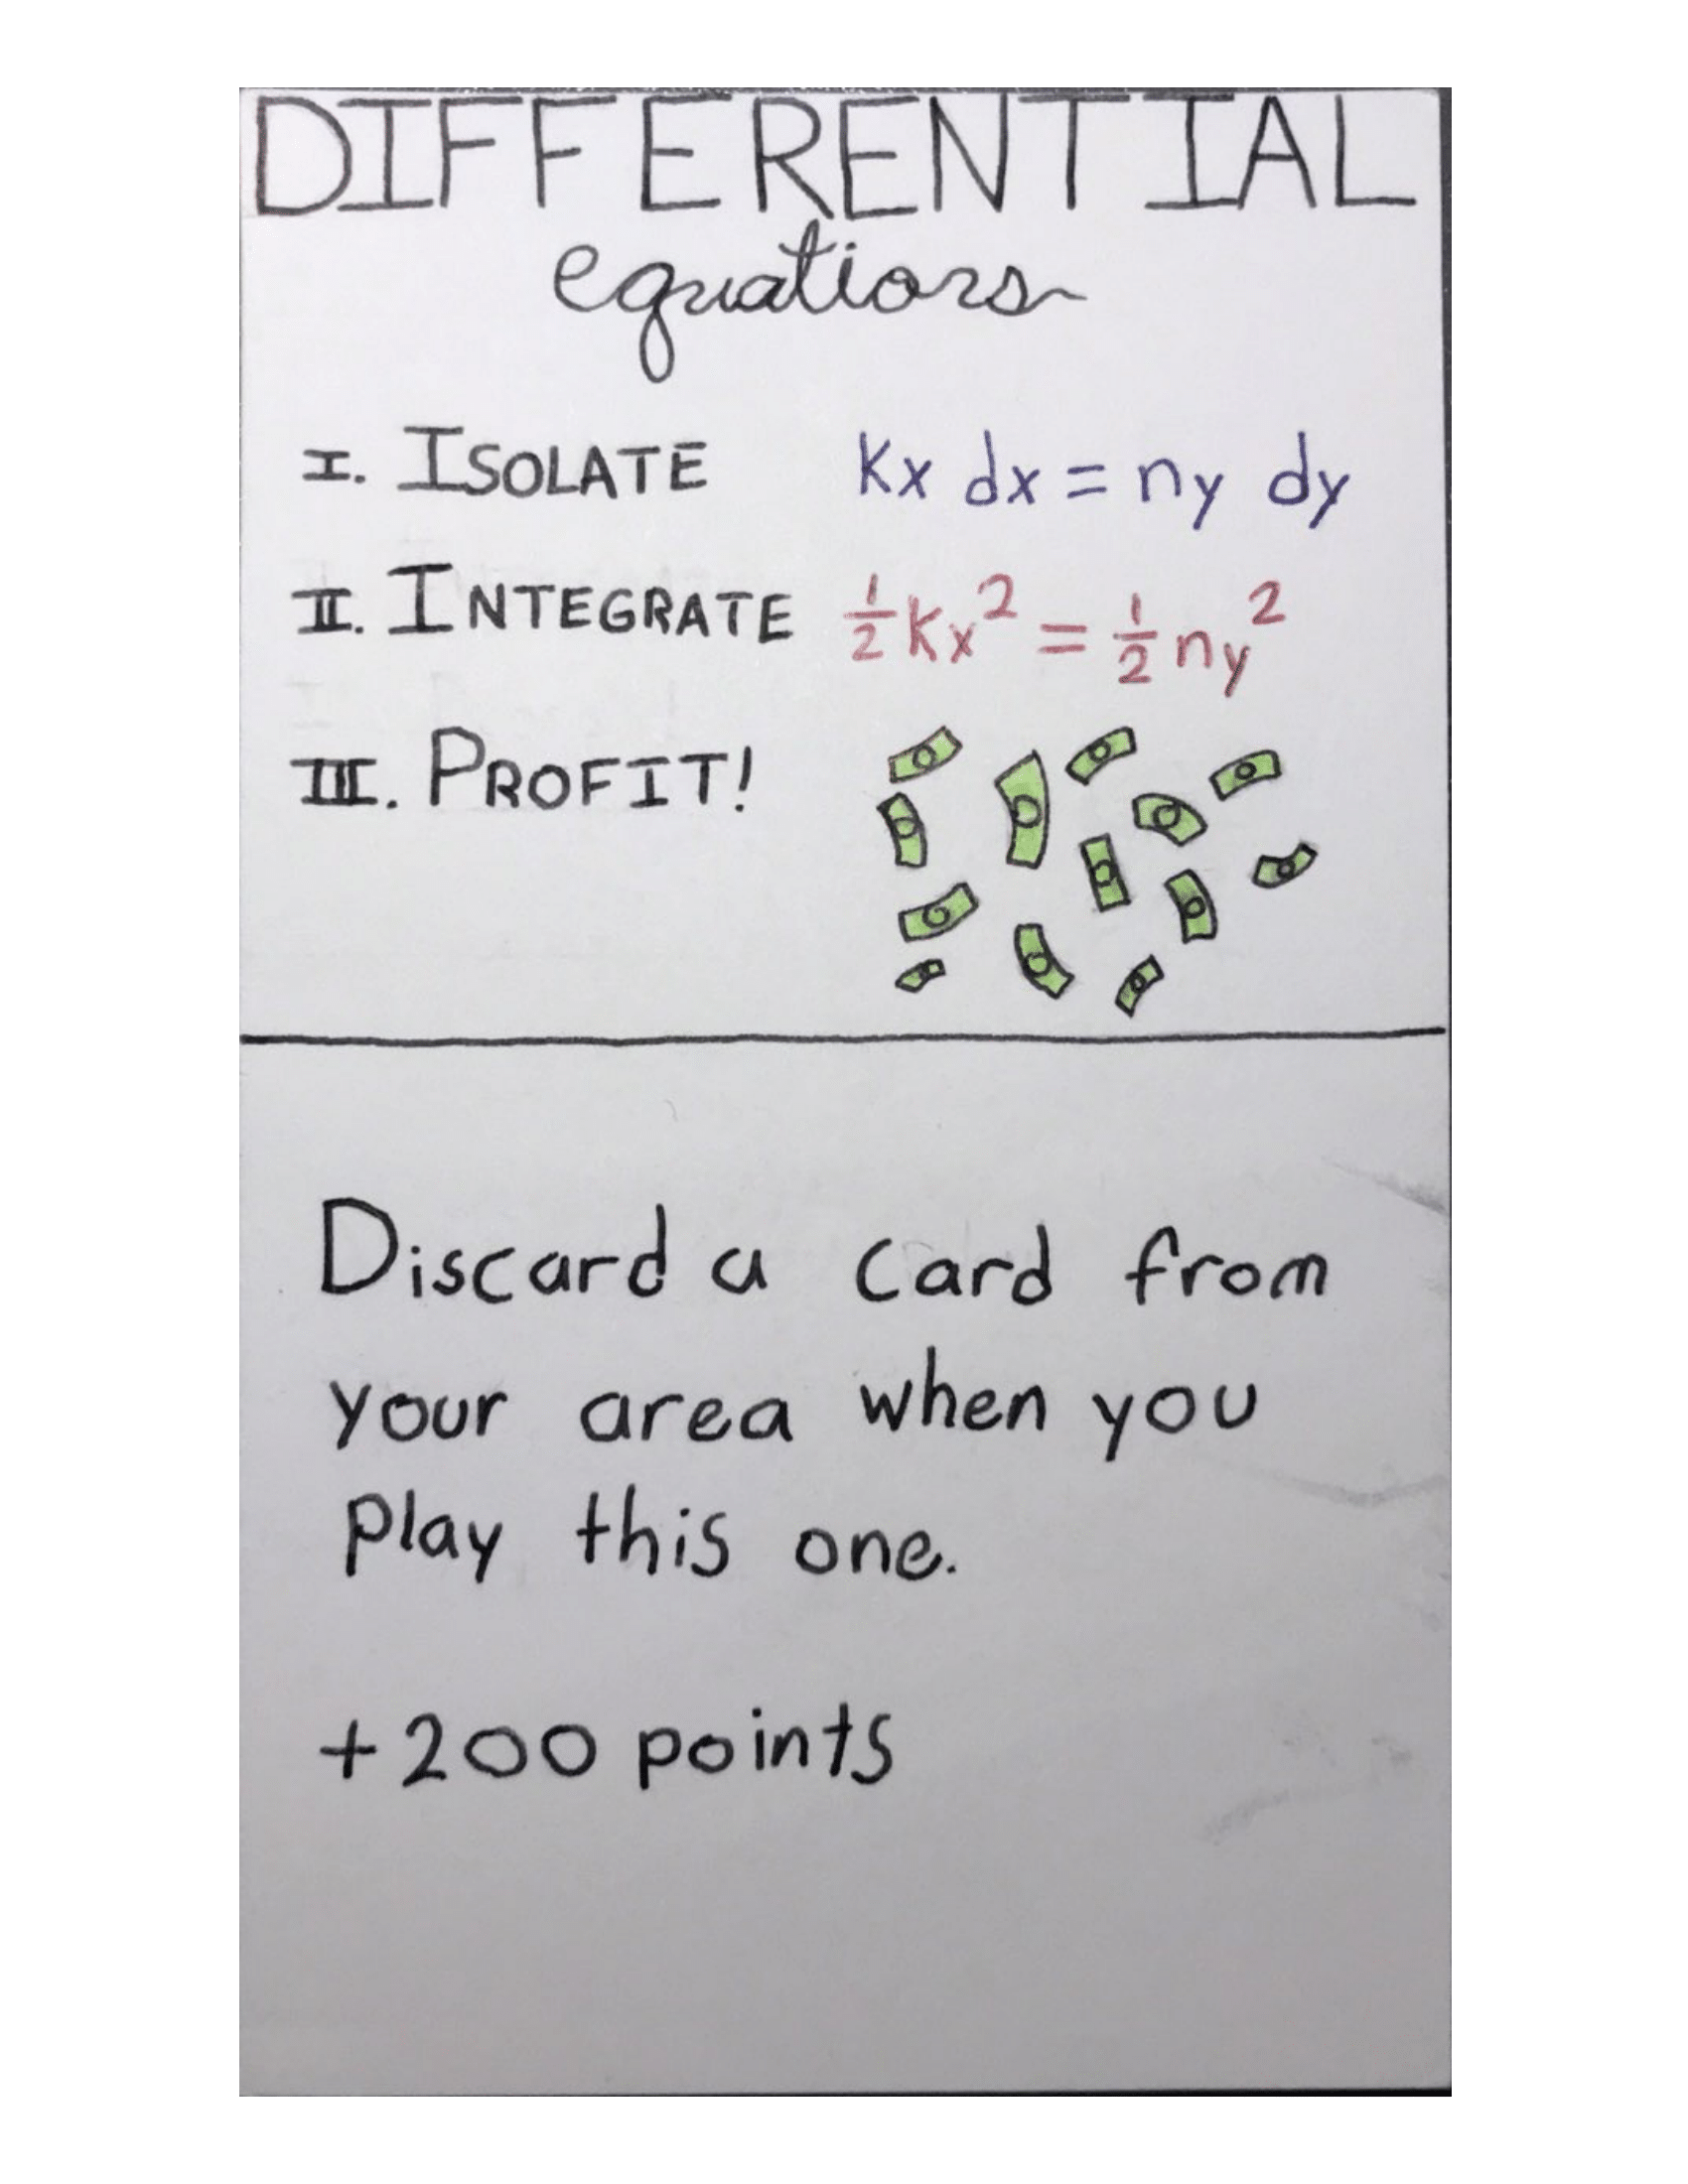 DIFFERENTIAL
equations
I. ISOLATE kx dx = ny dy
II. INTEGRATE ½kx² = ½ny²
III. PROFIT!
Discard a card from
your area when you
play this one.
+200 points